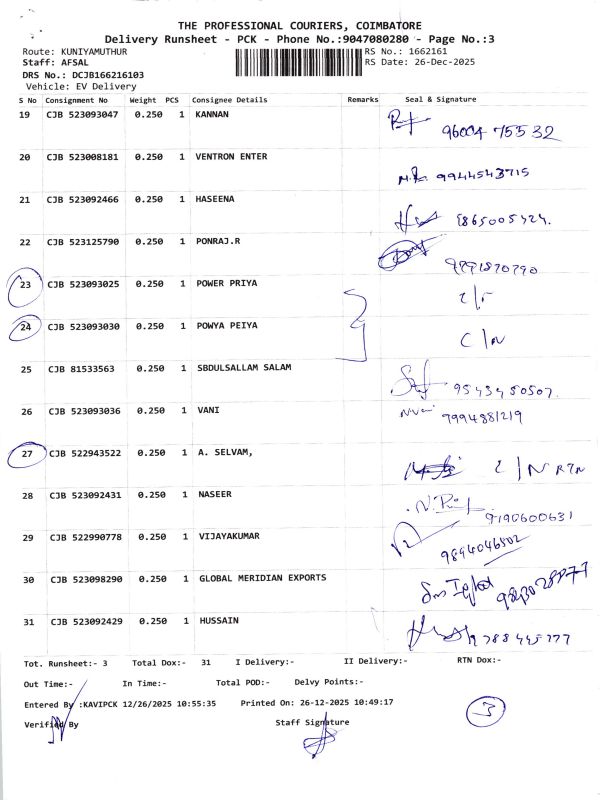 THE PROFESSIONAL COURIERS, COIMBATORE
Delivery Runsheet - PCK - Phone No.:9047080280 - Page No.:3
Route: KUNIYAMUTHUR RS No.: 1662161
Staff: AFSAL RS Date: 26-Dec-2025
DRS No.: DCJB166216103
Vehicle: EV Delivery
S No Consignment No Weight PCS Consignee Details Remarks Seal & Signature
19 CJB 523093047 0.250 1 KANNAN
20 CJB 523008181 0.250 1 VENTRON ENTER 9944543715
21 CJB 523092466 0.250 1 HASEENA
22 CJB 523125790 0.250 1 PONRAJ.R
23 CJB 523093025 0.250 1 POWER PRIYA
24 CJB 523093030 0.250 1 POWYA PEIYA C/N
25 CJB 81533563 1 SBDULSALLAM SALAM 9543450507
26 CJB 523093036 0.250 1 VANI 9994881219
27 CJB 522943522 0.250 1 A. SELVAM, RTN
28 CJB 523092431 0.250 1 NASEER 9190600631
29 CJB 522990778 0.250 1 VIJAYAKUMAR 9894046502
30 CJB 523098290 0.250 1 GLOBAL MERIDIAN EXPORTS
31 CJB 523092429 0.250 1 HUSSAIN
Tot. Runsheet:- 3 Total Dox:- 31 I Delivery:- II Delivery:- RTN Dox:-
Out Time:- In Time:- Total POD:- Delvy Points:-
Entered By :KAVIPCK 12/26/2025 10:55:35 Printed On: 26-12-2025 10:49:17
Verified By Staff Signature
3